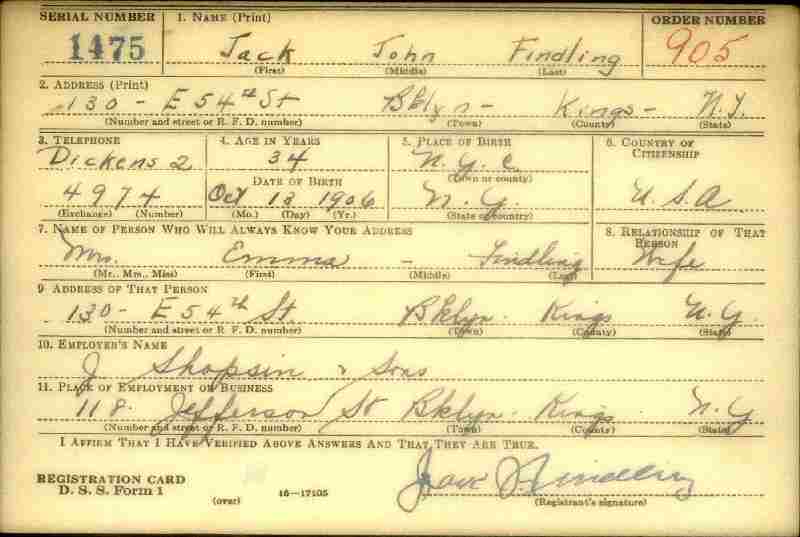 SERIAL NUMBER 1. NAME (Print) ORDER NUMBER
1475 Jack John Findling 905
(First) (Middle) (Last)
2. ADDRESS (Print)
130 - E 54th St Bklyn - Kings - N.Y.
(Number and street or R. F. D. number) (Town) (County) (State)
3. TELEPHONE 4. AGE IN YEARS 5. PLACE OF BIRTH 6. COUNTRY OF CITIZENSHIP
Dickens 2 34 N.Y.C
DATE OF BIRTH (Town or county)
4974 Oct 13 1906 N.Y. U.S.A
(Exchange) (Number) (Mo.) (Day) (Yr.) (State or country)
7. NAME OF PERSON WHO WILL ALWAYS KNOW YOUR ADDRESS 8. RELATIONSHIP OF THAT PERSON
Mrs. Emma - Findling Wife
(Mr., Mrs., Miss) (First) (Middle) (Last)
9. ADDRESS OF THAT PERSON
130 - E 54th St Bklyn. Kings N.Y.
(Number and street or R. F. D. number) (Town) (County) (State)
10. EMPLOYER'S NAME
J Shopsin & Sons
11. PLACE OF EMPLOYMENT OR BUSINESS
118. Jefferson St Bklyn. Kings N.Y
(Number and street or R. F. D. number) (Town) (County) (State)
I AFFIRM THAT I HAVE VERIFIED ABOVE ANSWERS AND THAT THEY ARE TRUE.
REGISTRATION CARD
D. S. S. Form 1 (over) 16—17105 Jack J Findling
(Registrant's signature)